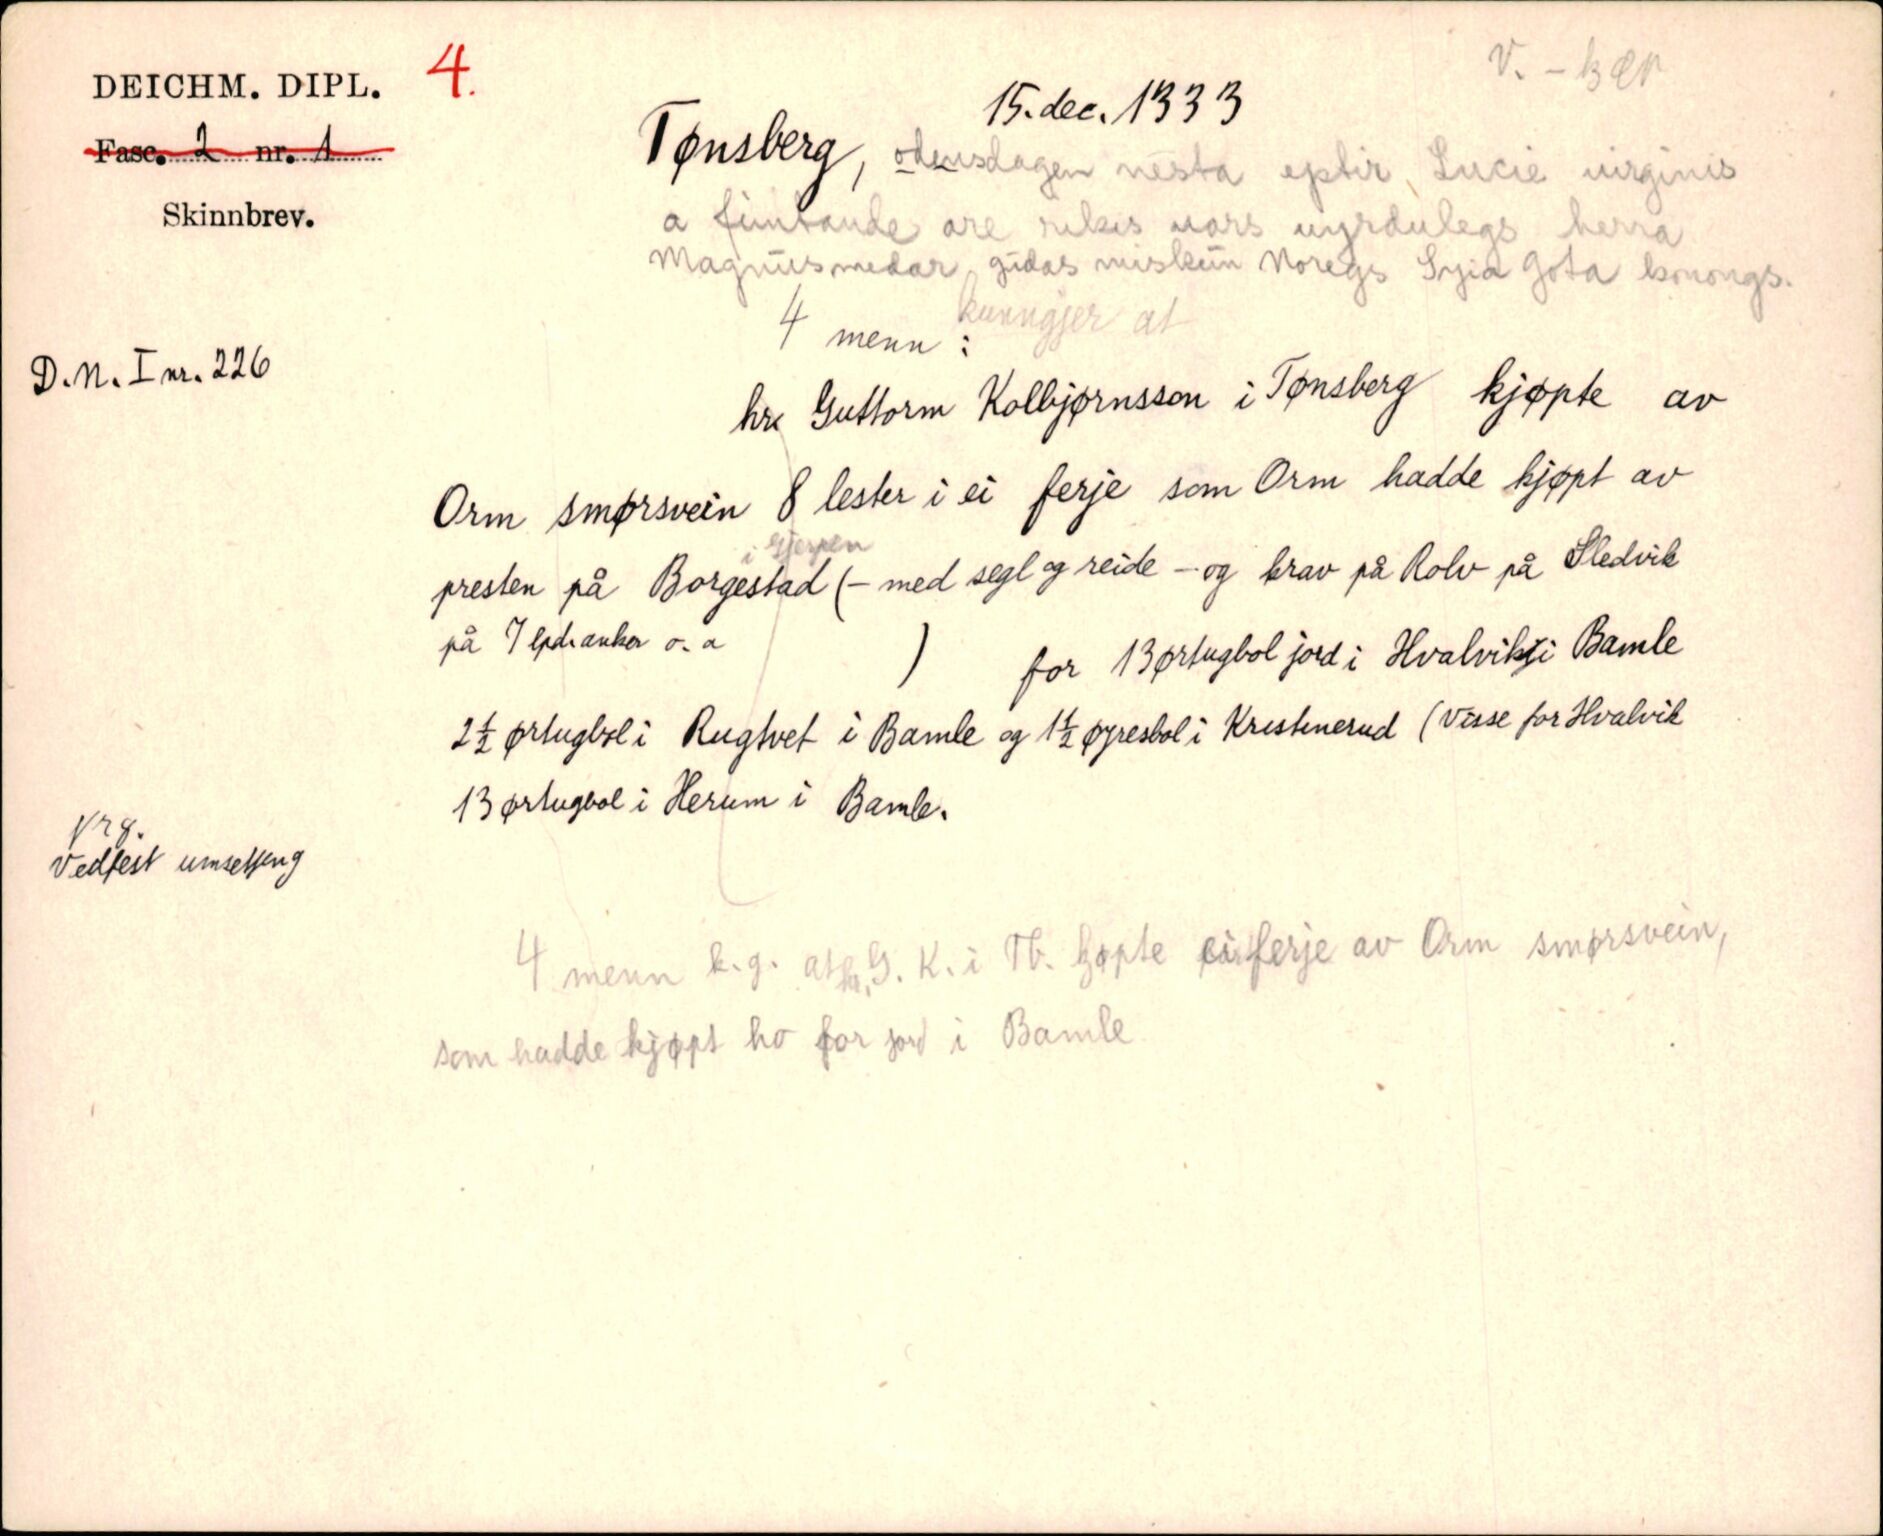 DEICHM. DIPL. 4.
Fasc. 2 nr. 1
Skinnbrev.
D.N. I nr. 226
Vedfest umsetjing
V. - 
15. dec. 1333
Tønsberg, odensdagen nesta eptir Lucie uirginis
a fimtande are rikis uors uyrdulegs herra
Magnus medar gudas miskun Noregs Syia Gota konongs.
4 menn : kunngjer at
hr. Guttorm Kolbjørnsson i Tønsberg kjøpte av
Orm smørsvein 8 lester i ei ferje som Orm hadde kjøpt av
i Gjerpen
presten på Borgestad (- med segl og reide - og krav på Rolv på Sledvik
på 7 lpd. anker o. a ) for 13 ørtugbol jord i Hvalvik i Bamle
2½ ørtugbol i Rugtvet i Bamle og 1½ øyresbol i Kristinerud (Visse for Hvalvik
13 ørtugbol i Herum i Bamle.
4 menn k.g. at hr. G. K. i Tb. kjøpte ferje av Orm smørsvein,
som hadde kjøpt ho for jord i Bamle